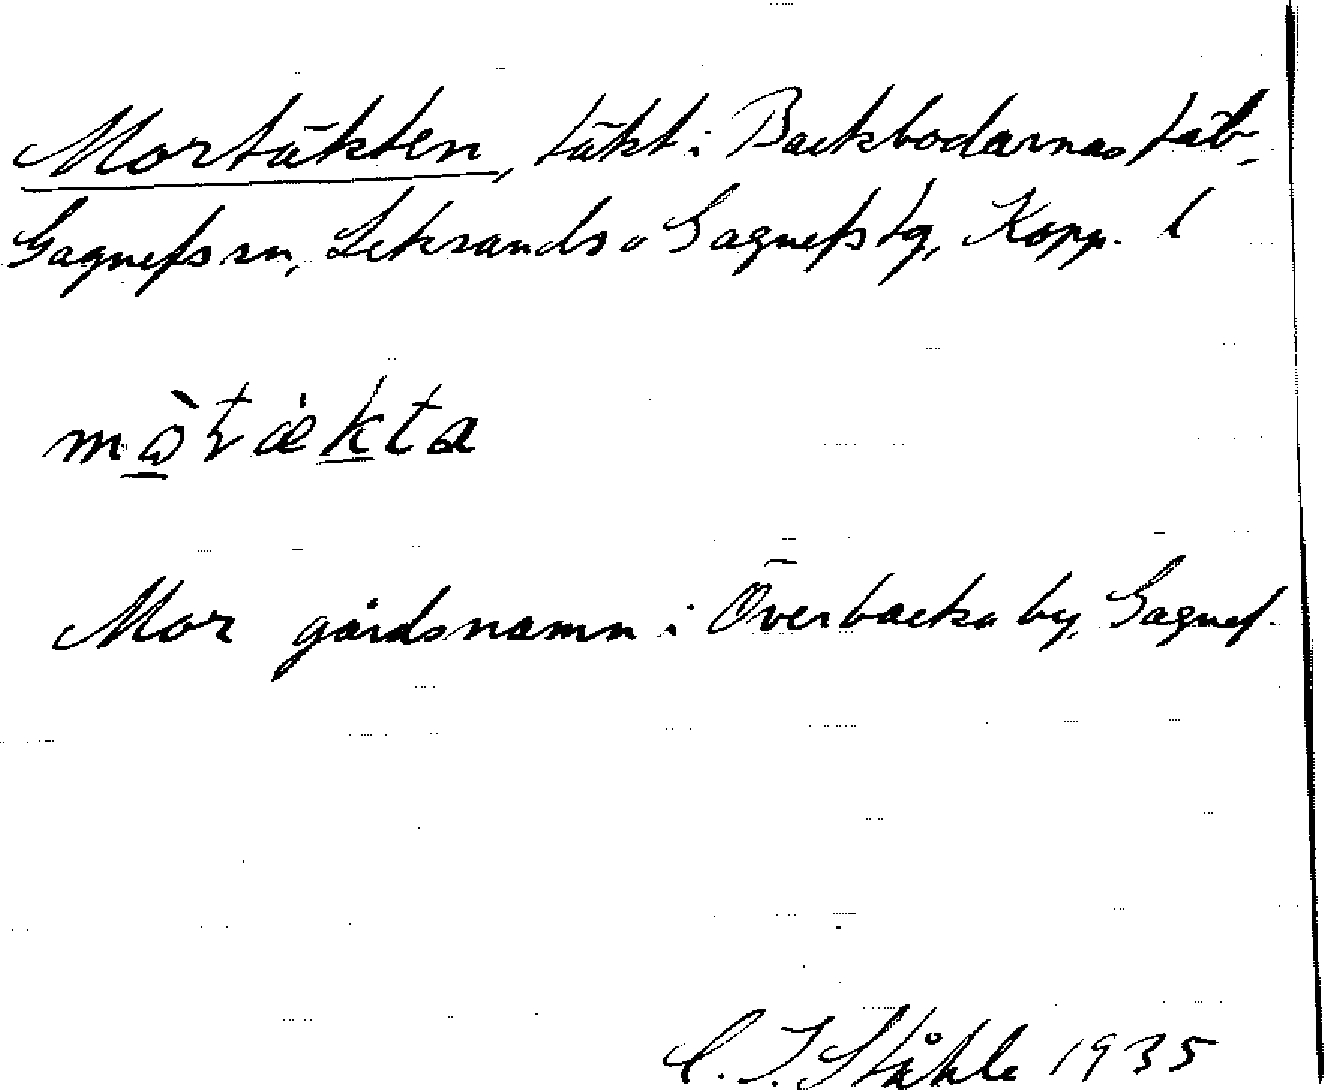 Mortäkten, täkt i Backbodarnas fäb.
Gagnefs sn, Leksands o Gagnefs tg, Kopp. l
mɷ̀ṭækta
Mor gårdsnamn i Överbacka by, Gagnef.
C. I. Ståhle 1935